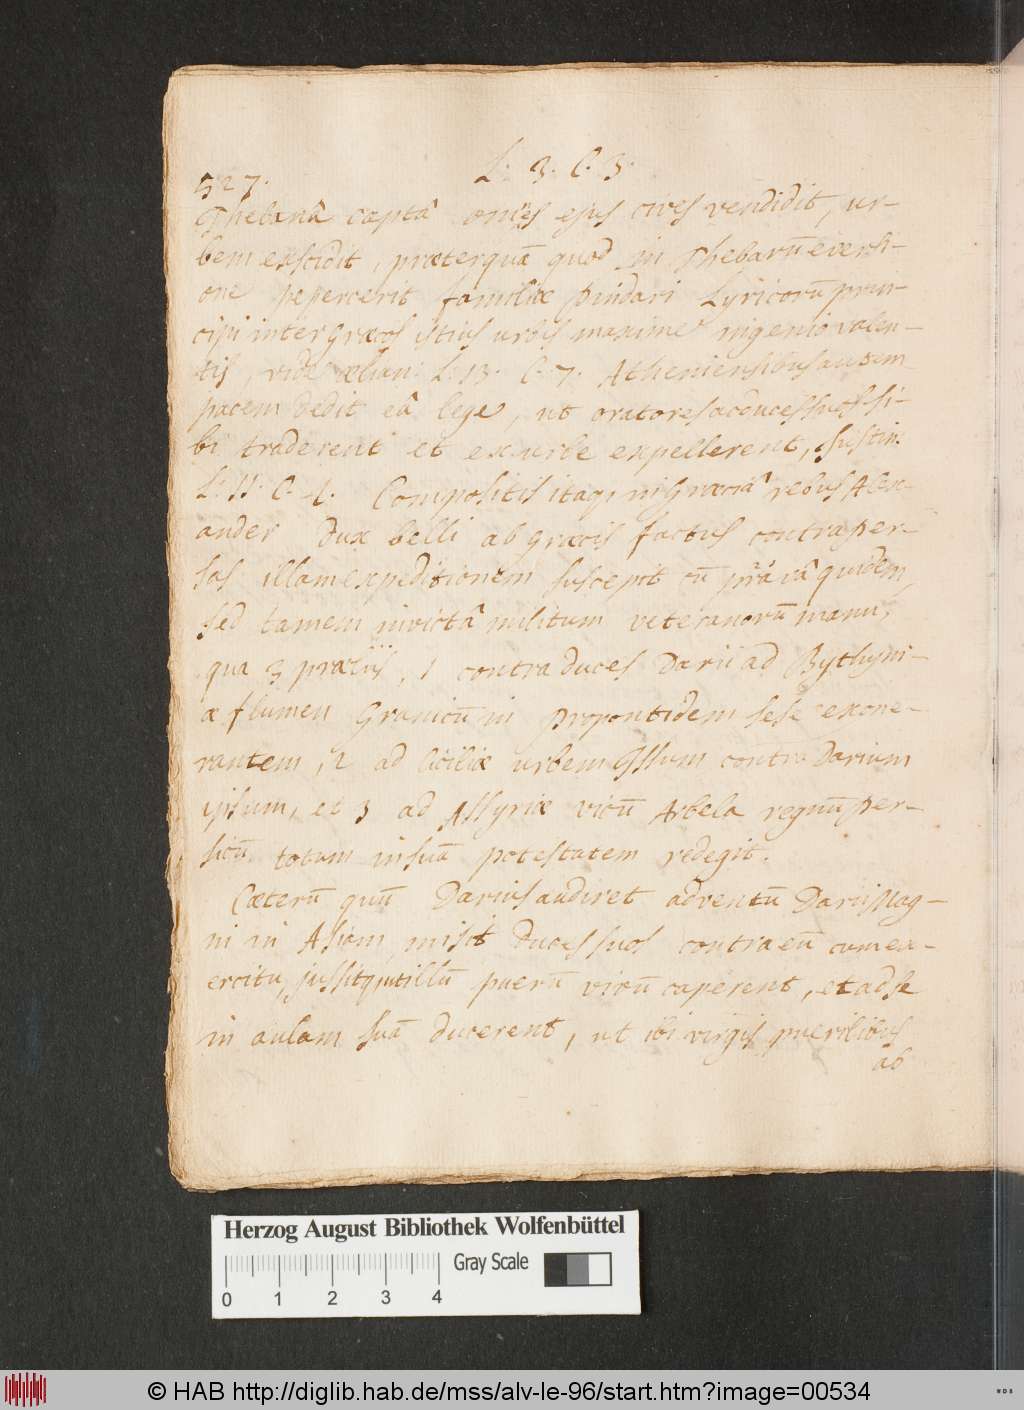 527. L. 3. C. 3.
Thebanâ captâ on̄es ejus cives vendidit, ur-
bem exscidit, præterquā quod in Thebarū eversi-
one pepercerit familiæ Pindari Lyricorū prin-
cipi inter græcos istius urbis maxime ingenio valen-
tis, vide ælian: L. 13. C. 7. Atheniensibus autem
pacem dedit eâ lege, ut oratores ac duces suos si-
bi traderent et ex urbe expellerent, Justin.
L. 11. C. 4. Compositis itaq; in Græciâ rebus Alex-
ander Dux belli ab græcis factus contra per-
sas illam expeditionem suscepit cū parvâ quidem,
sed tamen invictâ militum veteranorū manu,
qua 3 præliis, 1 contra duces Darii ad Bythyni-
æ flumen Granicū in Propontidem sese exone-
rantem, 2 ad Ciciliæ urbem Issum contra Darium
ipsum, et 3 ad Assyriæ vicū Arbela regnū per-
sicū totum in suā potestatem redegit.
Cæterū quū Darius audiret adventū Darii Mag-
ni in Asiam, misit Duces suos contra eū cum ex-
ercitu, jussitq; ut illū puerū vivū caperent, et ad se
in aulam suā ducerent, ut ibi virgis puerilibus
ab
Herzog August Bibliothek Wolfenbüttel
Gray Scale
0 1 2 3 4
© HAB http://diglib.hab.de/mss/alv-le-96/start.htm?image=00534